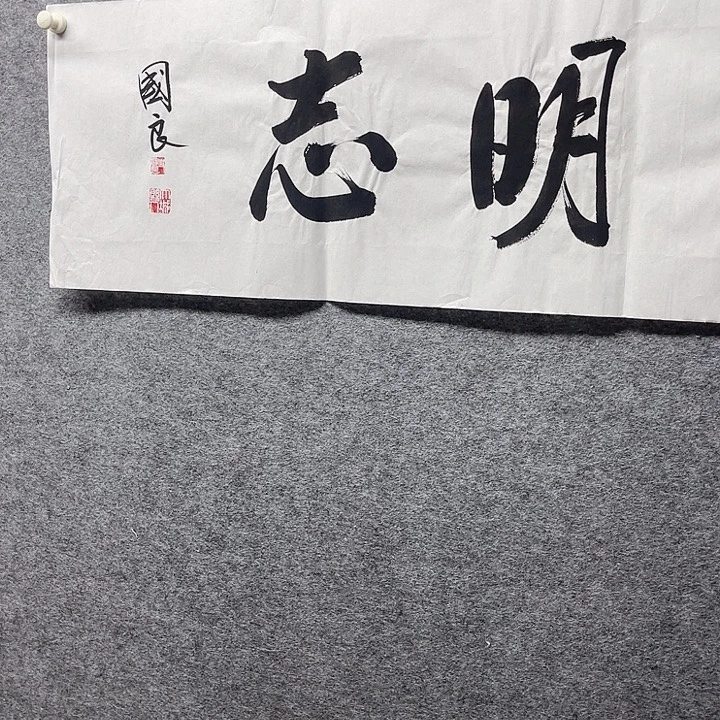 明志
國良